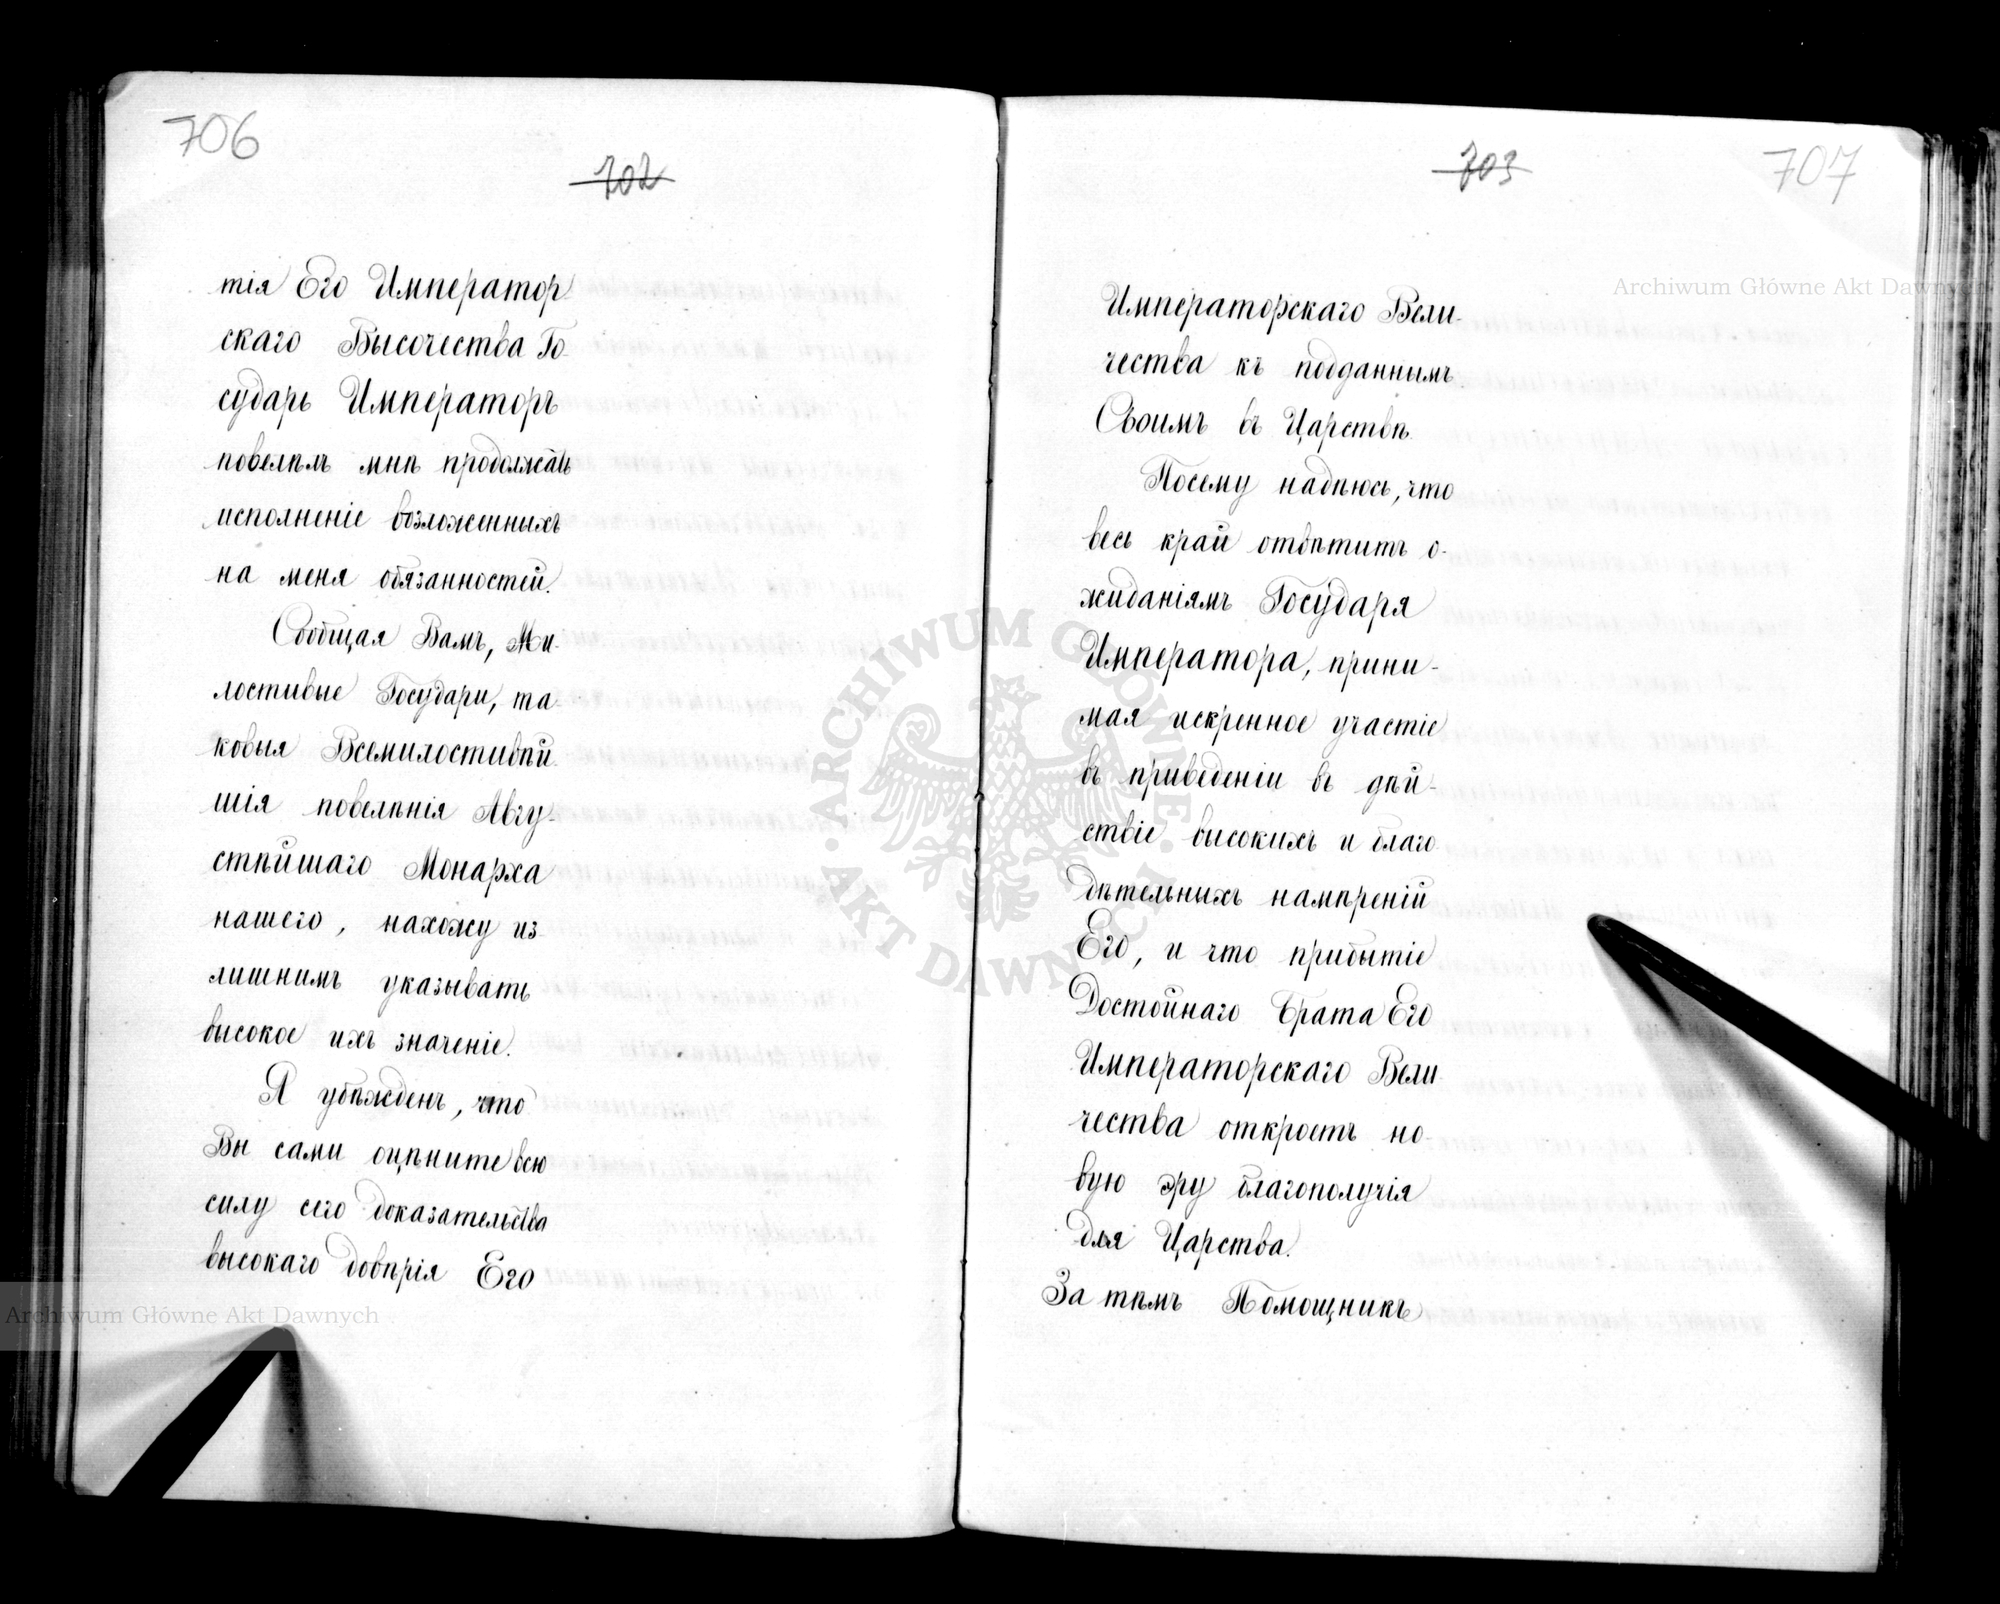 706
702
тія Его Император-
скаго Высочества Го-
сударь Императоръ
повелѣлъ мнѣ продолжать
исполненіе возложенныхъ
на меня обязанностей.
Сообщая Вамъ, Ми-
лостивые Государи, та-
ковыя Всемилостивѣй-
шія повелѣнія Авгу-
стѣйшаго Монарха
нашего, нахожу из-
лишнимъ указывать
высокое ихъ значеніе.
Я убѣжденъ, что
Вы сами оцѣните всю
силу сего доказательства
высокаго довѣрія Его
703
707
Императорскаго Вели-
чества къ подданнымъ
Своимъ въ Царствѣ.
Посему надѣюсь, что
весь край отвѣтитъ о-
жиданіямъ Государя
Императора, прини-
мая искренное участіе
въ приведеніи въ дѣй-
ствіе высокихъ и благо-
дѣтельныхъ намѣреній
Его, и что прибытіе
Достойнаго Брата Его
Императорскаго Вели-
чества откроетъ но-
вую эру благополучія
для Царства.
За тѣмъ Помощникъ
Archiwum Główne Akt Dawnych
Archiwum Główne Akt Dawnych
ARCHIWUM GŁÓWNE AKT DAWNYCH